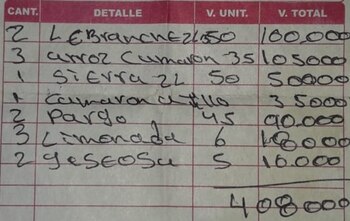 CANT. DETALLE V. UNIT. V. TOTAL
2 LEBranche 50 100,000
3 arroz Camaron 35 105000
1 SiErra 2L 50 50000
1 Camaron 35000
2 Pargo 45 90.000
3 Limonada 6 18000
2 gaSEOSa 5 10.000
408000